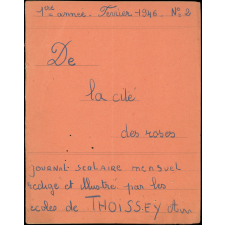 1ère année. Février 1946 N° 2
De
la cité
des roses
JOURNAL SCOLAIRE MENSUEL
rédigé et illustré par les
écoles de THOISSEY Ain